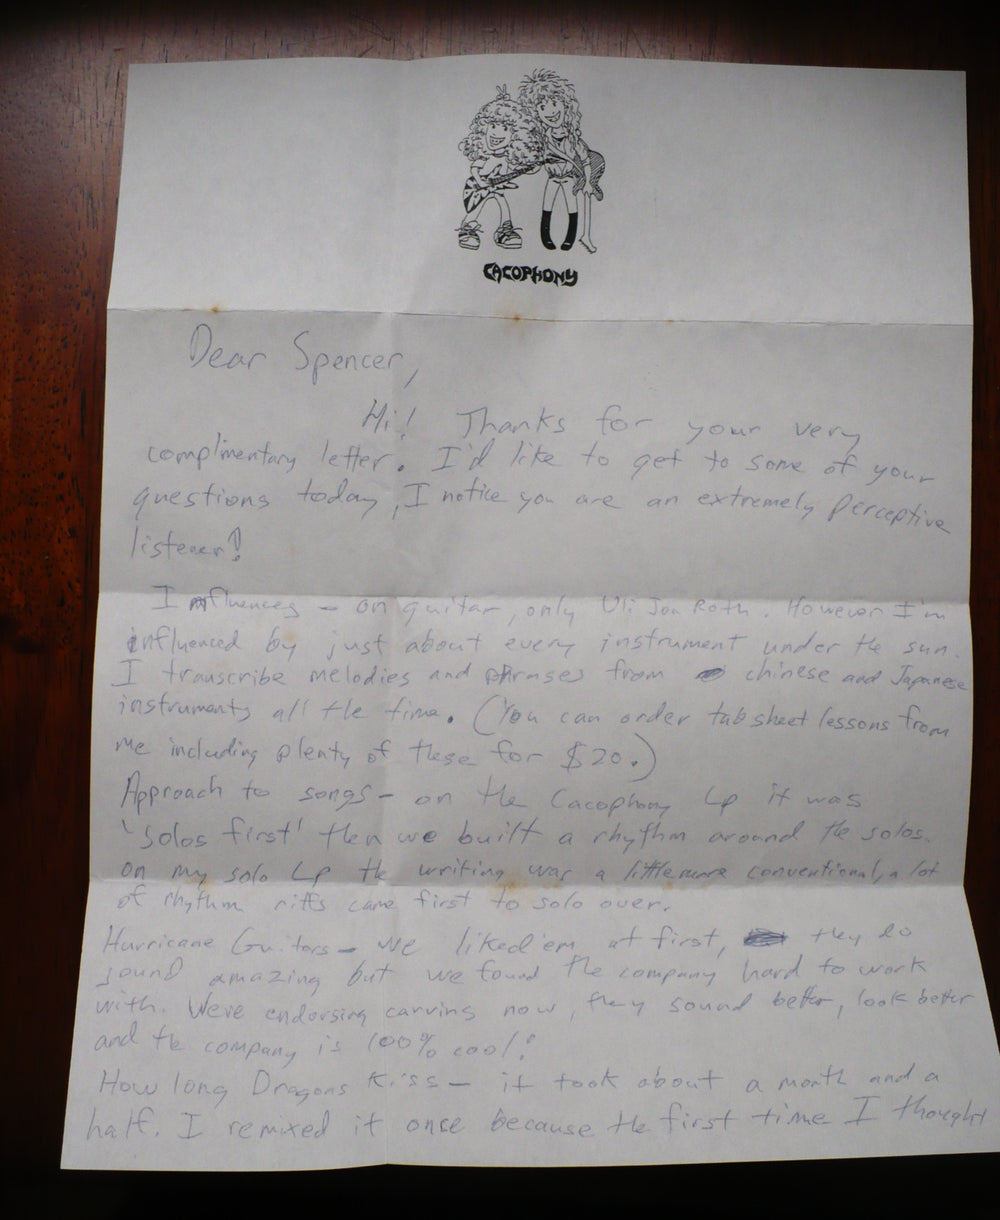 CACOPHONY
Dear Spencer,
Hi! Thanks for your very
complimentary letter. I'd like to get to some of your
questions today, I notice you are an extremely perceptive
listener!
Influences - on guitar, only Uli Jon Roth. However I'm
influenced by just about every instrument under the sun.
I transcribe melodies and phrases from chinese and Japanese
instruments all the time. (You can order tab sheet lessons from
me including plenty of these for $20.)
Approach to songs - on the Cacophony Lp it was
'solos first' then we built a rhythm around the solos.
On my solo Lp the writing was a little more conventional, a lot
of rhythm riffs came first to solo over.
Hurricane Guitars - we liked 'em at first, they do
sound amazing but we found the company hard to work
with. We're endorsing carvins now, they sound better, look better
and the company is 100% cool!
How long Dragons Kiss - it took about a month and a
half. I remixed it once because the first time I thought